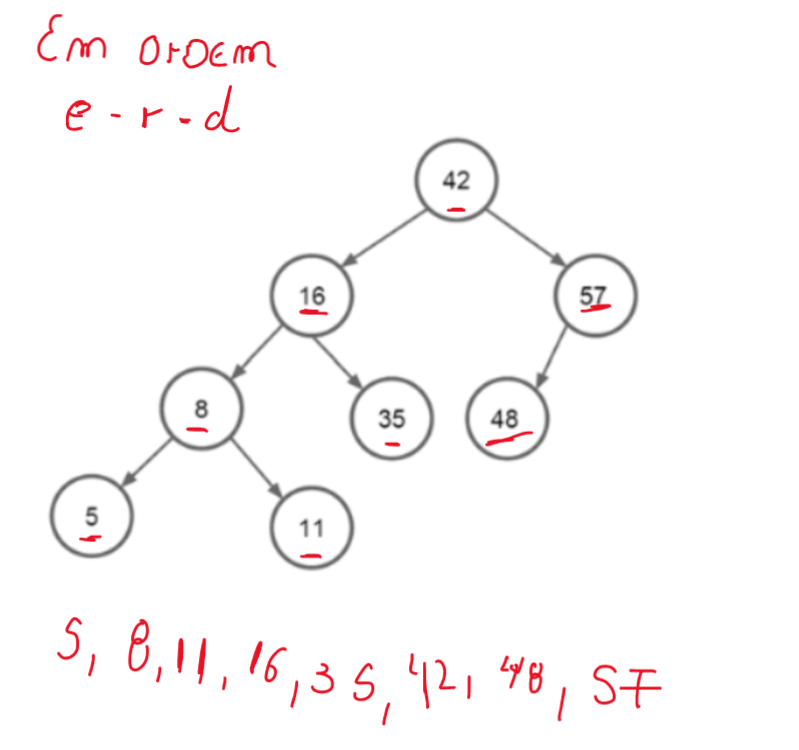 Em ordem
e - r - d
42
16 57
8 35 48
5 11
5, 8, 11, 16, 35, 42, 48, 57